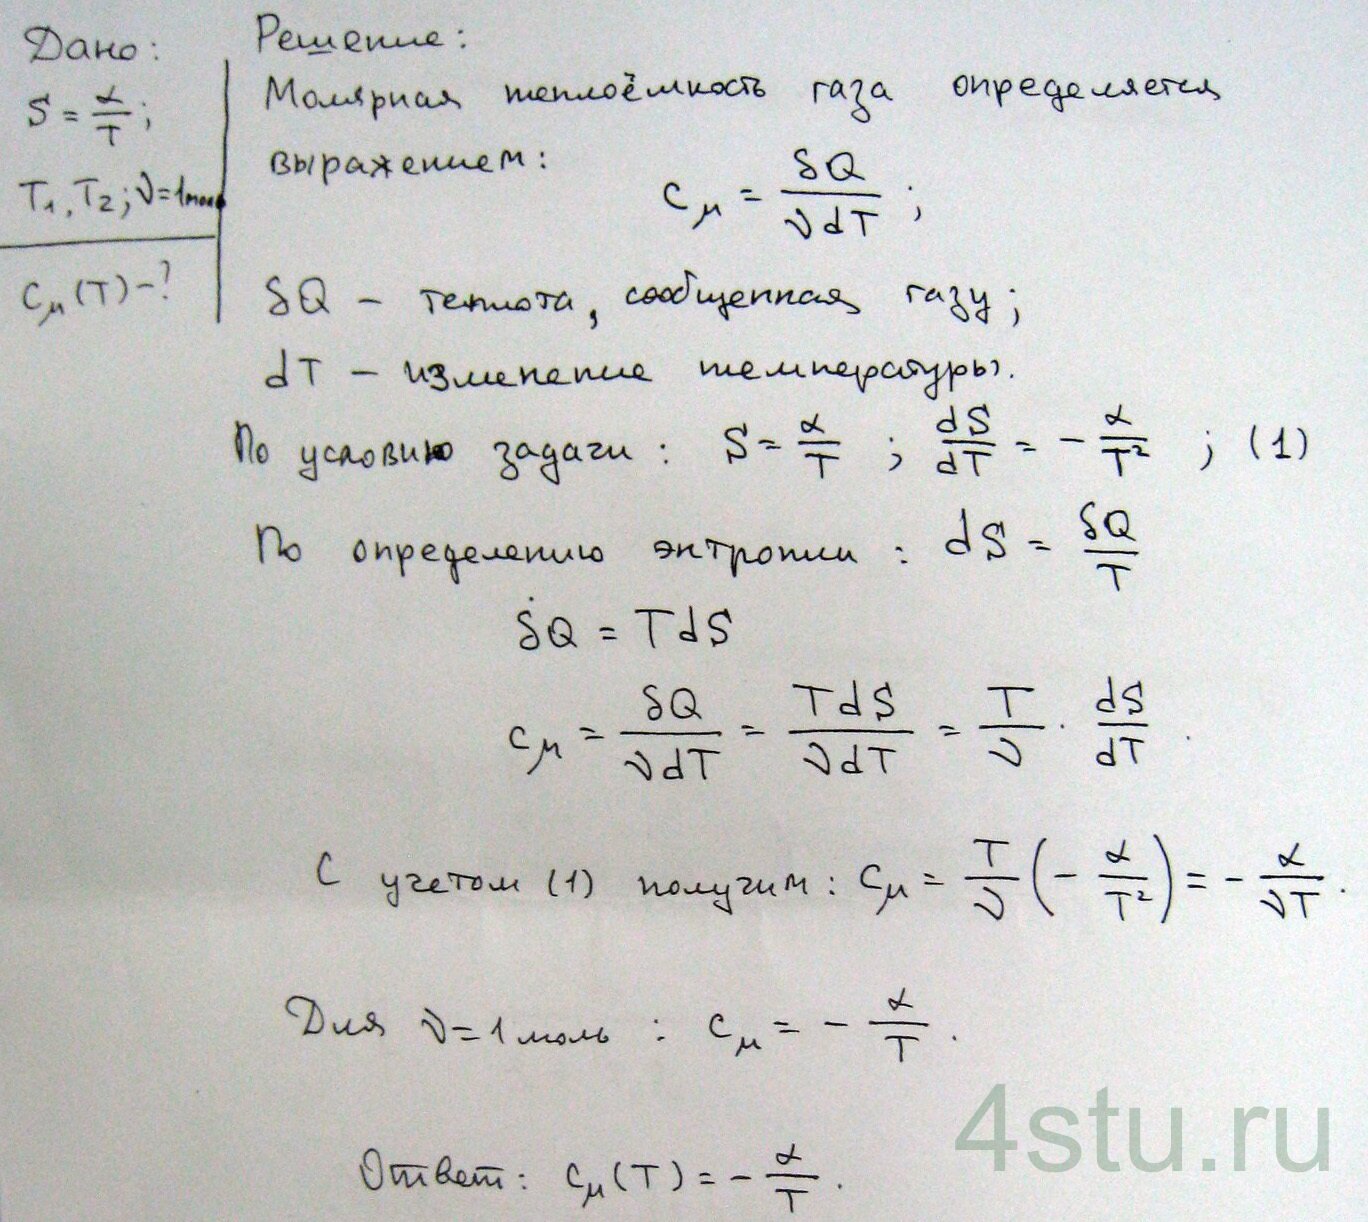 Дано:
S = α/T;
T₁, T₂; ν = 1 моль
Cμ(T) – ?
Решение:
Молярная теплоёмкость газа определяется
выражением:
Cμ = δQ/(νdT) ;
δQ – теплота, сообщенная газу;
dT – изменение температуры.
По условию задачи: S = α/T ; dS/dT = – α/T² ; (1)
По определению энтропии: dS = δQ/T
δQ = TdS
Cμ = δQ/(νdT) = TdS/(νdT) = T/ν · dS/dT .
С учетом (1) получим: Cμ = T/ν (– α/T²) = – α/(νT) .
Для ν = 1 моль : Cμ = – α/T .
4stu.ru
Ответ: Cμ(T) = – α/T .